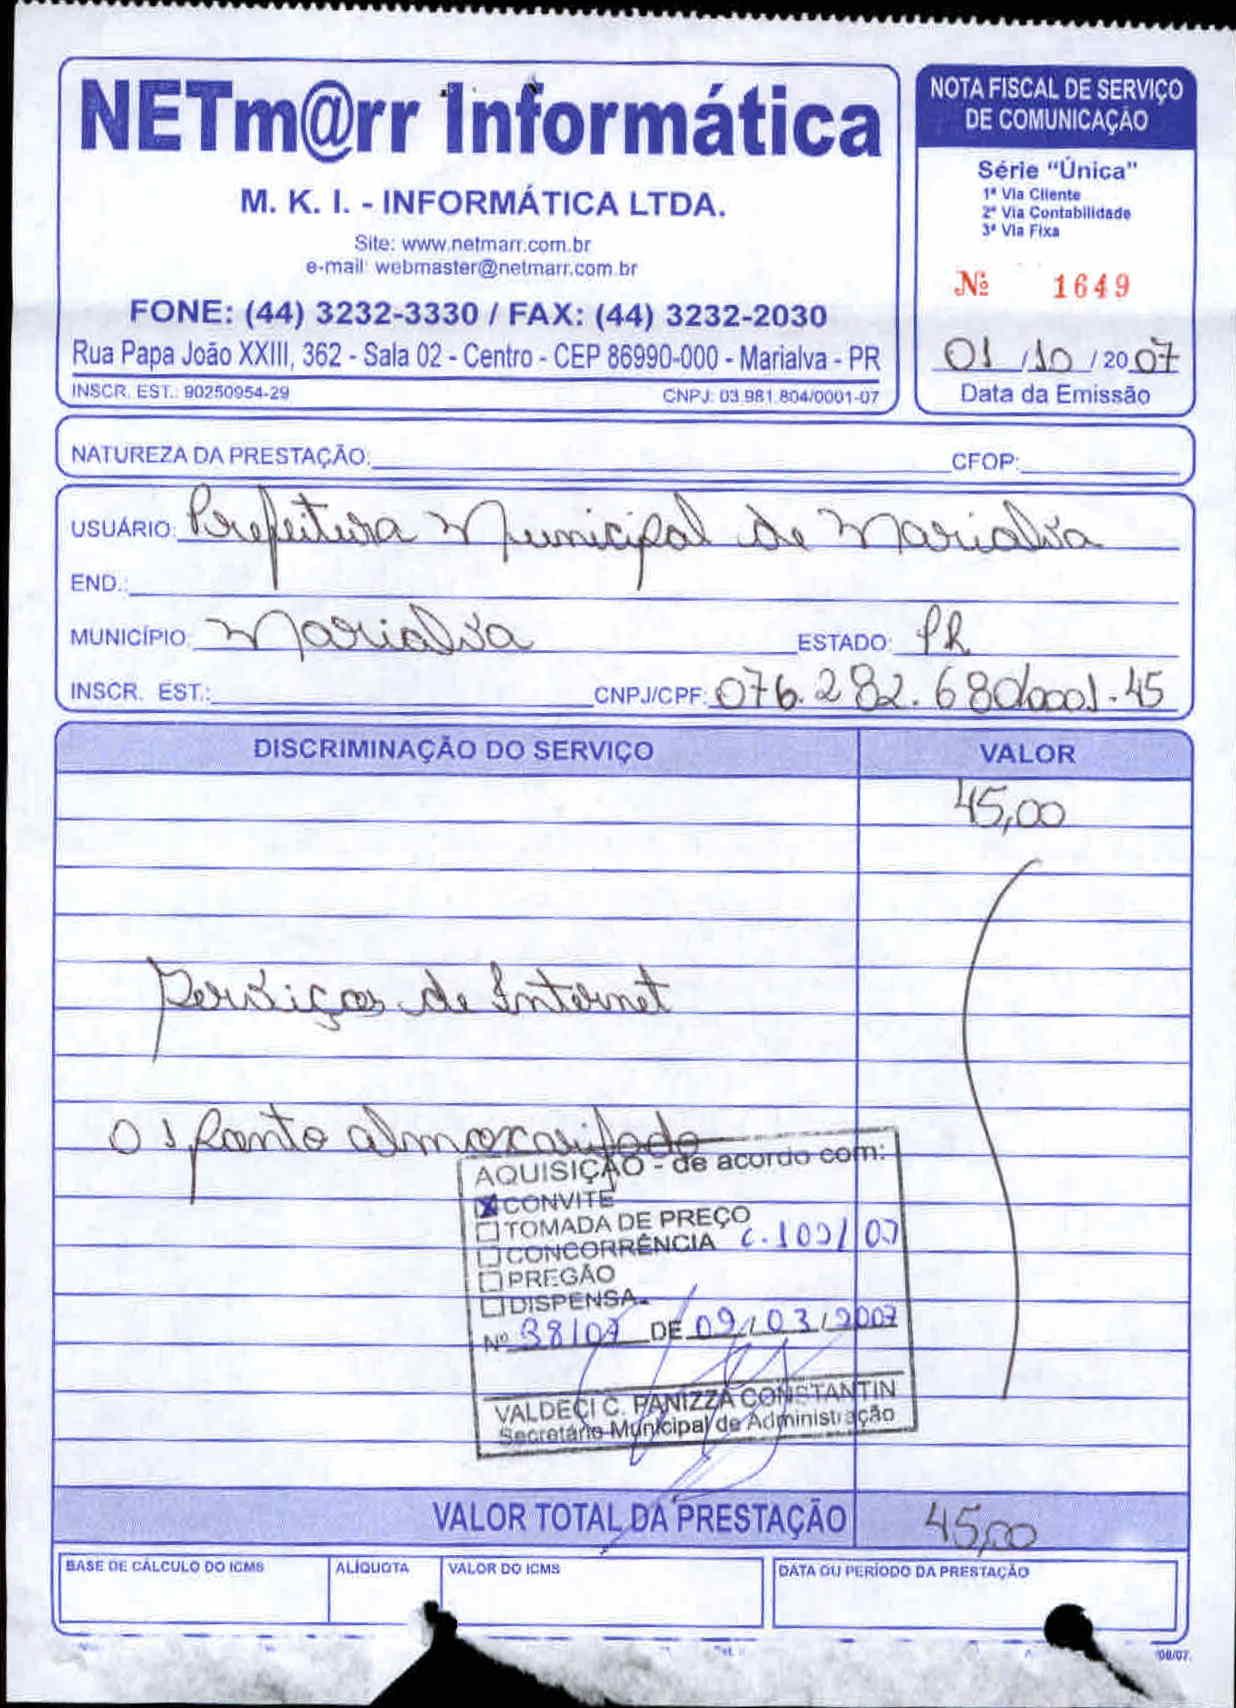 NETm@rr Informática
M. K. I. - INFORMÁTICA LTDA.
Site: www.netmarr.com.br
e-mail: webmaster@netmarr.com.br
FONE: (44) 3232-3330 / FAX: (44) 3232-2030
Rua Papa João XXIII, 362 - Sala 02 - Centro - CEP 86990-000 - Marialva - PR
INSCR. EST.: 90250954-29 CNPJ: 03.981.804/0001-07
NOTA FISCAL DE SERVIÇO
DE COMUNICAÇÃO
Série "Única"
1ª Via Cliente
2ª Via Contabilidade
3ª Via Fixa
Nº 1649
01 / 10 / 2007
Data da Emissão
NATUREZA DA PRESTAÇÃO: CFOP:
USUÁRIO: Prefeitura Municipal de Marialva
END.:
MUNICÍPIO: Marialva ESTADO: PR
INSCR. EST.: CNPJ/CPF: 076.282.680/0001-45
DISCRIMINAÇÃO DO SERVIÇO VALOR
45,00
Serviços de Internet
01 Ponto almoxarifado
AQUISIÇÃO - de acordo com:
CONVITE
TOMADA DE PREÇO
CONCORRÊNCIA
PREGÃO
DISPENSA
Nº 38/07 DE 09/03/2007
VALDECI C. PANIZZA CONSTANTIN
Secretário Municipal de Administração
VALOR TOTAL DA PRESTAÇÃO 45,00
BASE DE CÁLCULO DO ICMS ALÍQUOTA VALOR DO ICMS DATA OU PERÍODO DA PRESTAÇÃO
08/07.